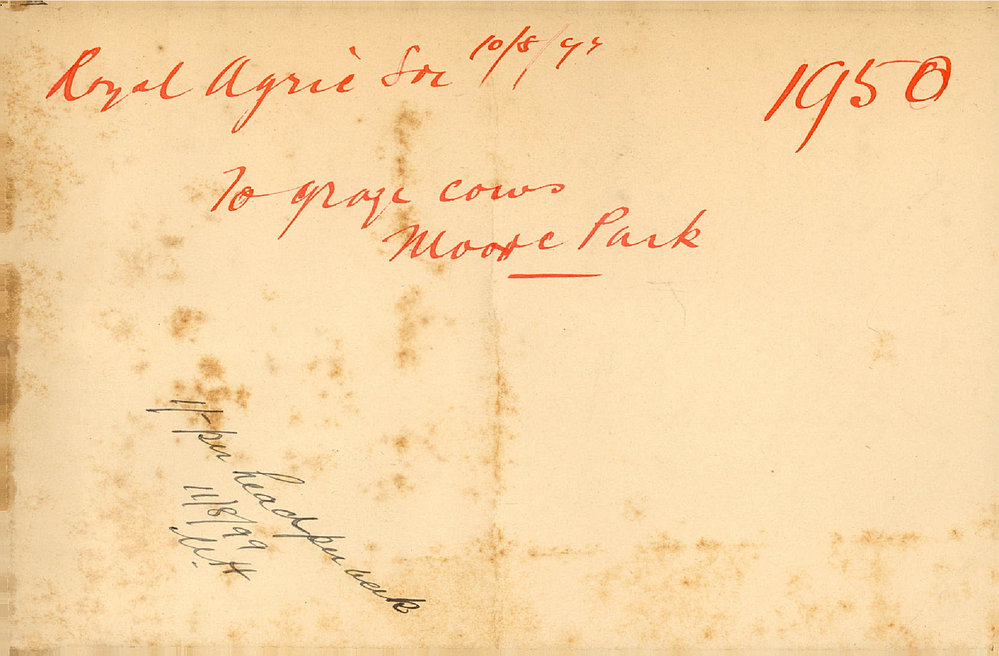 Royal Agric Soc 10/8/99
1950
To graze cows
Moore Park
1/- per head per week
11/8/99
W.H